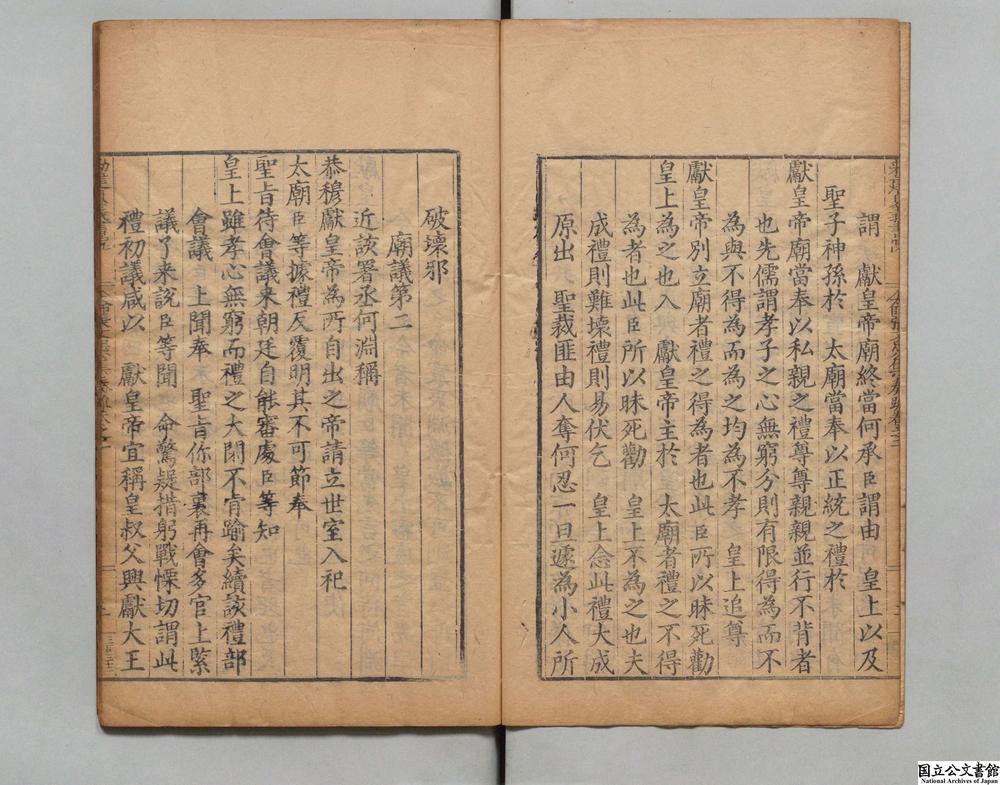 謂　獻皇帝廟終當何承臣謂由　皇上以及
聖子神孫於　太廟當奉以正統之禮於
獻皇帝廟當奉以私親之禮尊尊親親並行不背者
也先儒謂孝子之心無窮分則有限得為而不
為與不得為而為之均為不孝　皇上追尊
獻皇帝別立廟者禮之得為者也此臣所以昧死勸
皇上為之也入　獻皇帝主於　太廟者禮之不得
為者也此臣所以昧死勸　皇上不為之也夫
成禮則難壞禮則易伏乞　皇上念此禮大成
原出　聖裁匪由人奪何忍一旦遽為小人所
破壞邪
廟議第二
近該署丞何淵稱
恭穆獻皇帝為所自出之帝請立世室入祀
太廟臣等據禮反覆明其不可節奉
聖旨待會議来朝廷自能審處臣等知
皇上雖孝心無窮而禮之大閑不肯踰矣續該禮部
會議　上聞奉　聖旨你部裏再會多官上緊
議了来說臣等聞　命驚疑措躬戰慄切謂此
禮初議咸以　獻皇帝宜稱皇叔父興獻大王
国立公文書館
National Archives of Japan